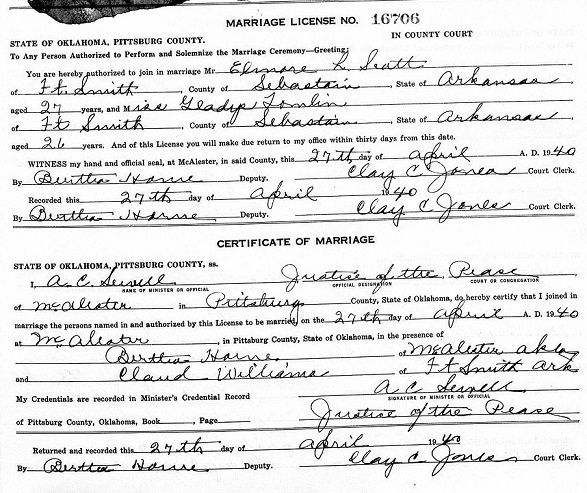 MARRIAGE LICENSE NO. 16706
STATE OF OKLAHOMA, PITTSBURG COUNTY. IN COUNTY COURT
To Any Person Authorized to Perform and Solemnize the Marriage Ceremony—Greeting:
You are hereby authorized to join in marriage Mr Elmore L. Scott
of Ft Smith, County of Sebastain, State of Arkansas
aged 27 years, and Miss Gladys Tomlin
of Ft Smith, County of Sebastain, State of Arkansas,
aged 26 years. And of this License you will make due return to my office within thirty days from this date.
WITNESS my hand and official seal, at McAlester, in said County, this 27th day of April A. D. 1940
By Bertha Horne Deputy. Clay C. Jones Court Clerk.
Recorded this 27th day of April 1940
By Bertha Horne Deputy. Clay C. Jones Court Clerk.
CERTIFICATE OF MARRIAGE
STATE OF OKLAHOMA, PITTSBURG COUNTY, ss.
I, A. C. Sewell Justice of the Pease
NAME OF MINISTER OR OFFICIAL OFFICIAL DESIGNATION COURT OR CONGREGATION
of McAlester in Pittsburg County, State of Oklahoma, do hereby certify that I joined in
marriage the persons named in and authorized by this License to be married, on the 27th day of April A. D. 1940
at McAlester, in Pittsburg County, State of Oklahoma, in the presence of
Berttha Horne of McAlester okla
and Claud Williams of Ft Smith Ark
My Credentials are recorded in Minister's Credential Record A C Sewell
SIGNATURE OF MINISTER OR OFFICIAL
of Pittsburg County, Oklahoma, Book Page Justice of the Pease
Returned and recorded this 27th day of April 1940
By Bertha Horne Deputy. Clay C. Jones Court Clerk.